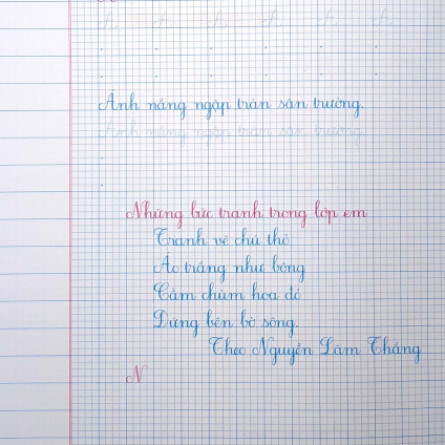 Ánh nắng ngập tràn sân trường.
Ánh nắng ngập tràn sân trường.
Những bức tranh trong lớp em
Tranh vẽ chú thỏ
Áo trắng như bông
Cầm chùm hoa đỏ
Đứng bên bờ sông.
Theo Nguyễn Lãm Thắng
N